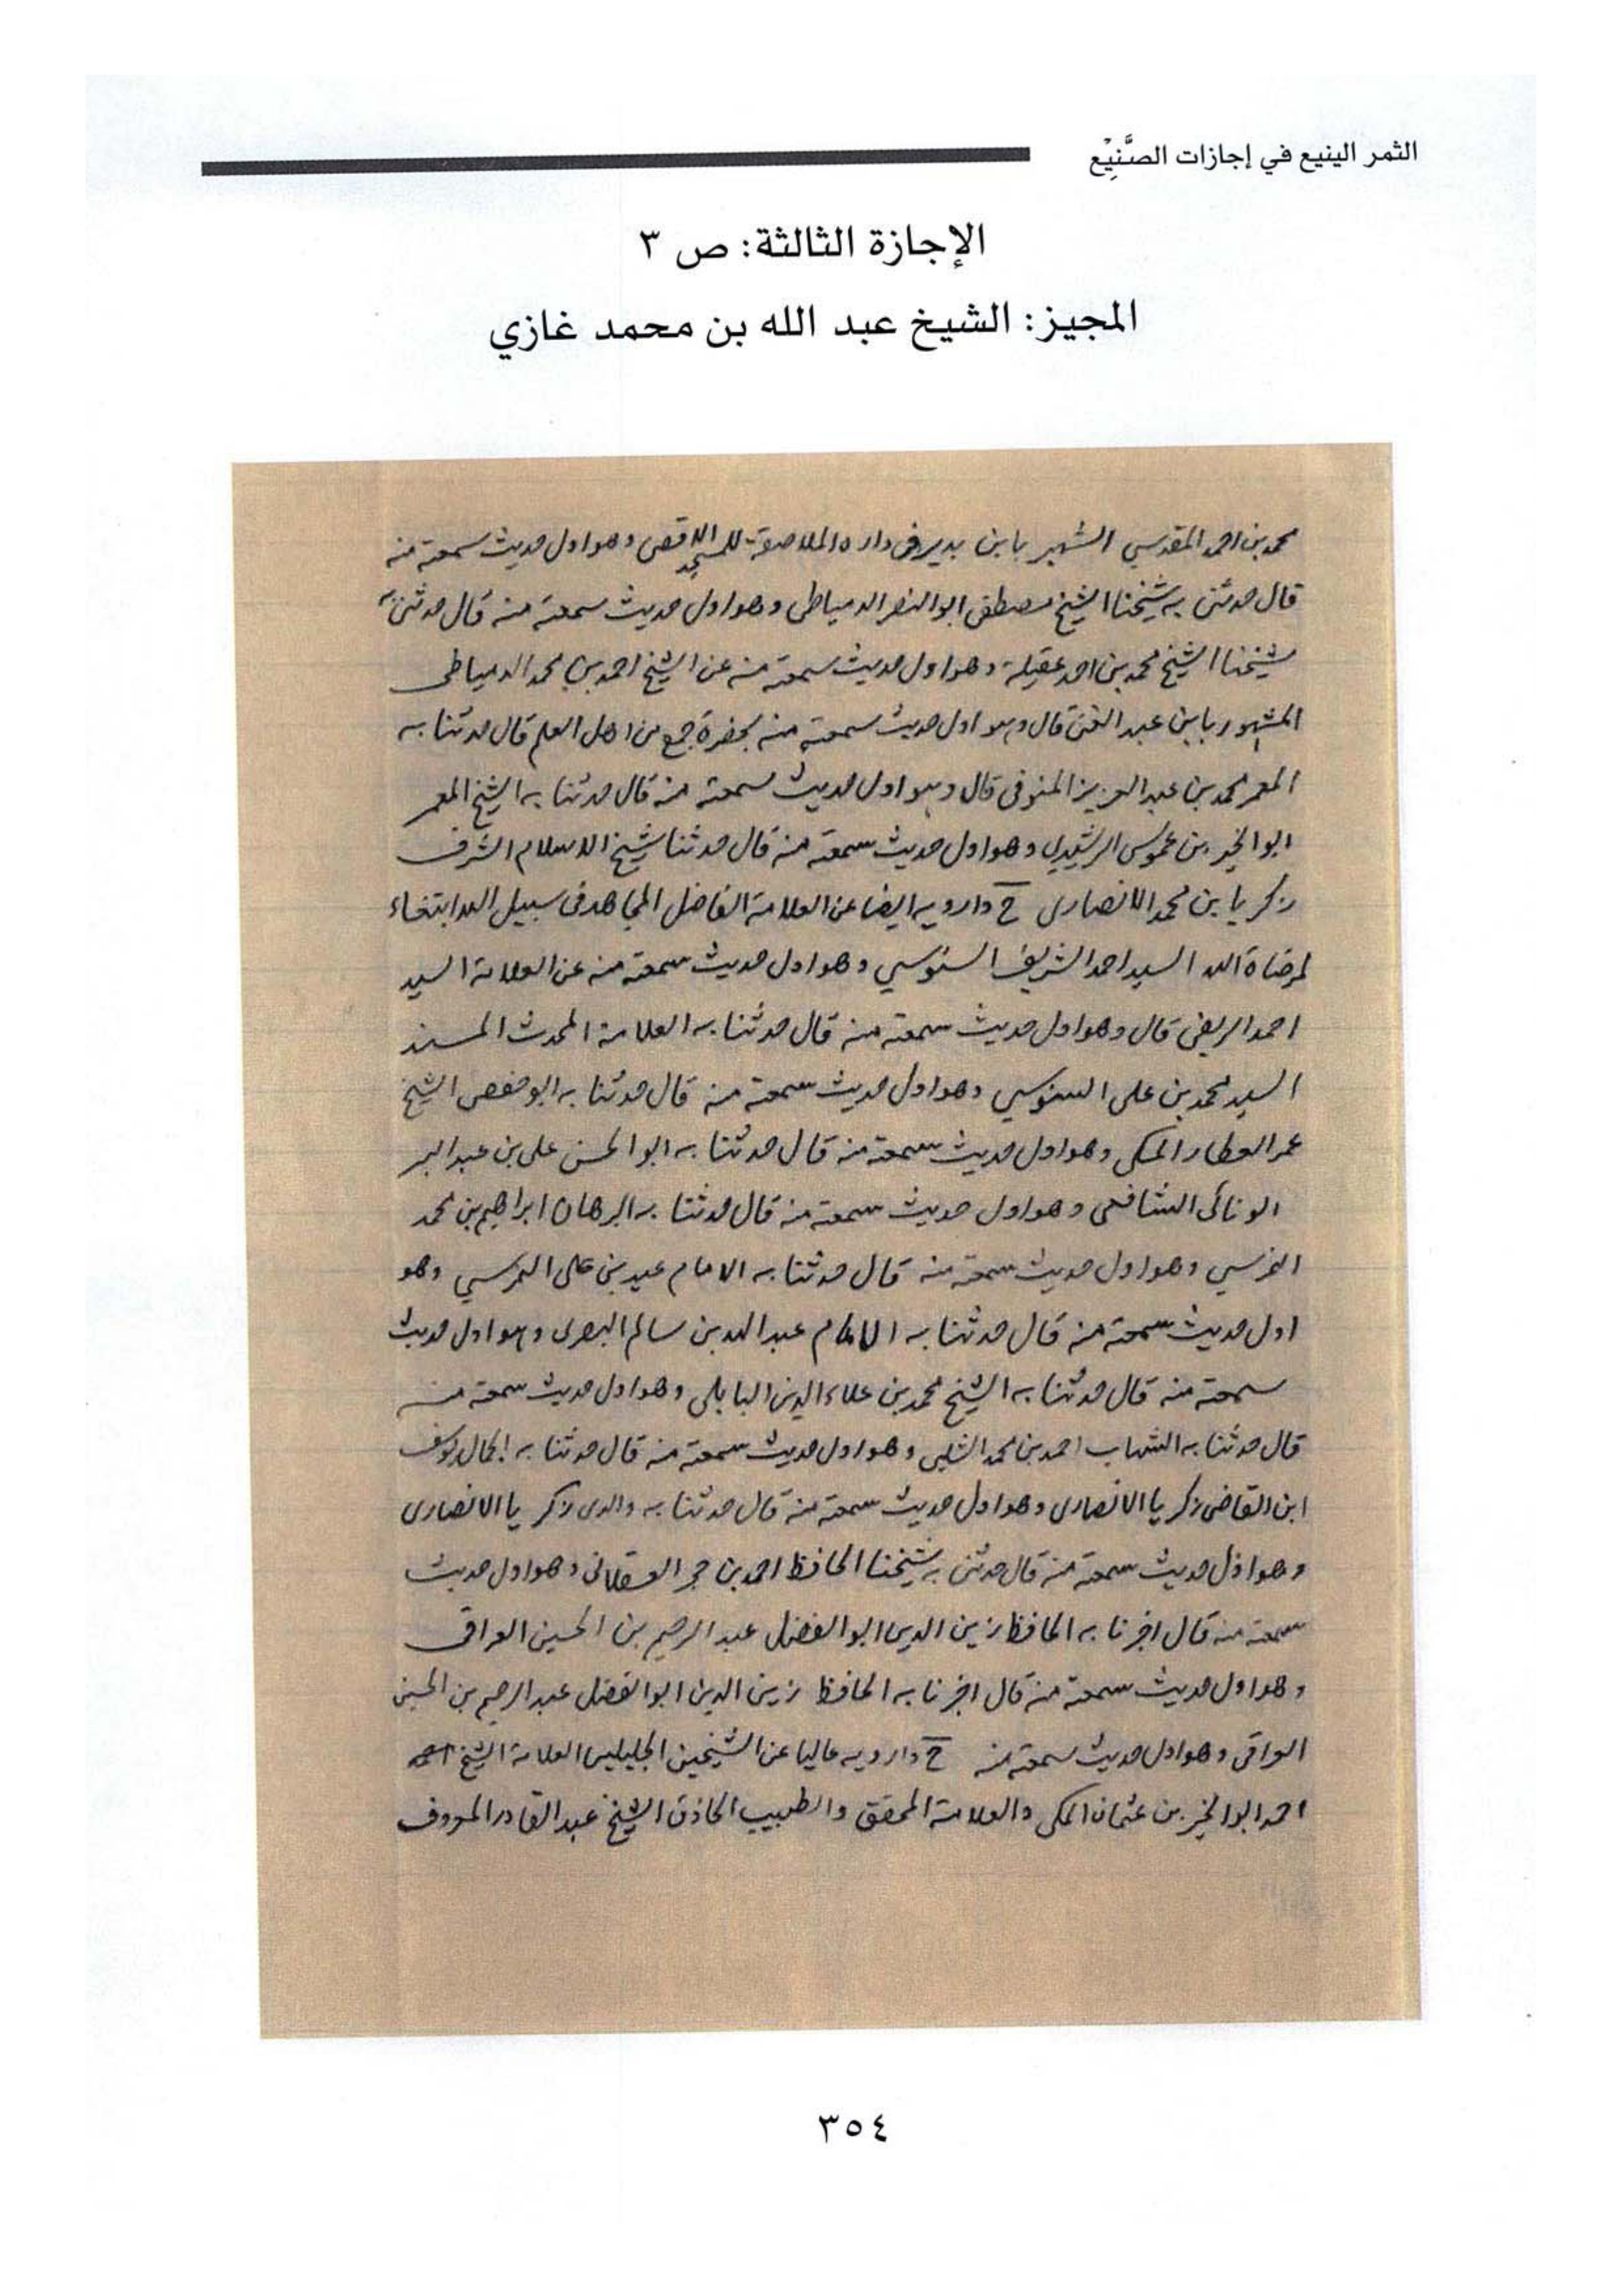 الثمر الينيع في إجازات الصَّنِيْع
الإجازة الثالثة: ص ٣
المجيز: الشيخ عبد الله بن محمد غازي
محمد بن احمد المقدسي الشهير بابن بدير في داره الملاصقة للمسجد الاقصى وهو اول حديث سمعته منه
قال حدثني به شيخنا الشيخ مصطفى ابو النصر الدمياطي وهو اول حديث سمعته منه قال حدثني به
شيخنا الشيخ محمد بن احمد عقيلة وهو اول حديث سمعته منه عن الشيخ احمد بن محمد الدمياطي
المشهور بابن عبد الغني قال وهو اول حديث سمعته منه بحضرة جمع من اهل العلم قال حدثنا به
المعمر محمد بن عبد العزيز المنوفي قال وهو اول حديث سمعته منه قال حدثنا به الشيخ المعمر
ابو الخير بن عموس الرشيدي وهو اول حديث سمعته منه قال حدثنا شيخ الاسلام الشرف
زكريا بن محمد الانصاري ح وارويه ايضا عن العلامة الفاضل المجاهد في سبيل الله ابتغاء
لمرضاة الله السيد احمد الشريف السنوسي وهو اول حديث سمعته منه عن العلامة السيد
احمد الريفي قال وهو اول حديث سمعته منه قال حدثنا به العلامة المحدث المسند
السيد محمد بن علي السنوسي وهو اول حديث سمعته منه قال حدثنا به ابو حفص الشيخ
عمر العطار المكي وهو اول حديث سمعته منه قال حدثنا به ابو الحسن علي بن عبد البر
الونائي الشافعي وهو اول حديث سمعته منه قال حدثنا به البرهان ابراهيم بن محمد
النمرسي وهو اول حديث سمعته منه قال حدثنا به الامام عيد بن علي النمرسي وهو
اول حديث سمعته منه قال حدثنا به الامام عبد الله بن سالم البصري وهو اول حديث
سمعته منه قال حدثنا به الشيخ محمد بن علاء الدين البابلي وهو اول حديث سمعته منه
قال حدثنا به الشهاب احمد بن محمد الشلبي وهو اول حديث سمعته منه قال حدثنا به الجمال يوسف
ابن القاضي زكريا الانصاري وهو اول حديث سمعته منه قال حدثنا به والدي زكريا الانصاري
وهو اول حديث سمعته منه قال حدثني به شيخنا الحافظ احمد بن حجر العسقلاني وهو اول حديث
سمعته منه قال اخبرنا به الحافظ زين الدين ابو الفضل عبد الرحيم بن الحسين العراقي
وهو اول حديث سمعته منه قال اخبرنا به الحافظ زين الدين ابو الفضل عبد الرحيم بن الحسين
العراقي وهو اول حديث سمعته منه ح وارويه عاليا عن الشيخين الجليلين العلامة الشيخ
احمد ابو الخير بن عثمان المكي والعلامة المحقق والطبيب الحاذق الشيخ عبد القادر المعروف
٣٥٤